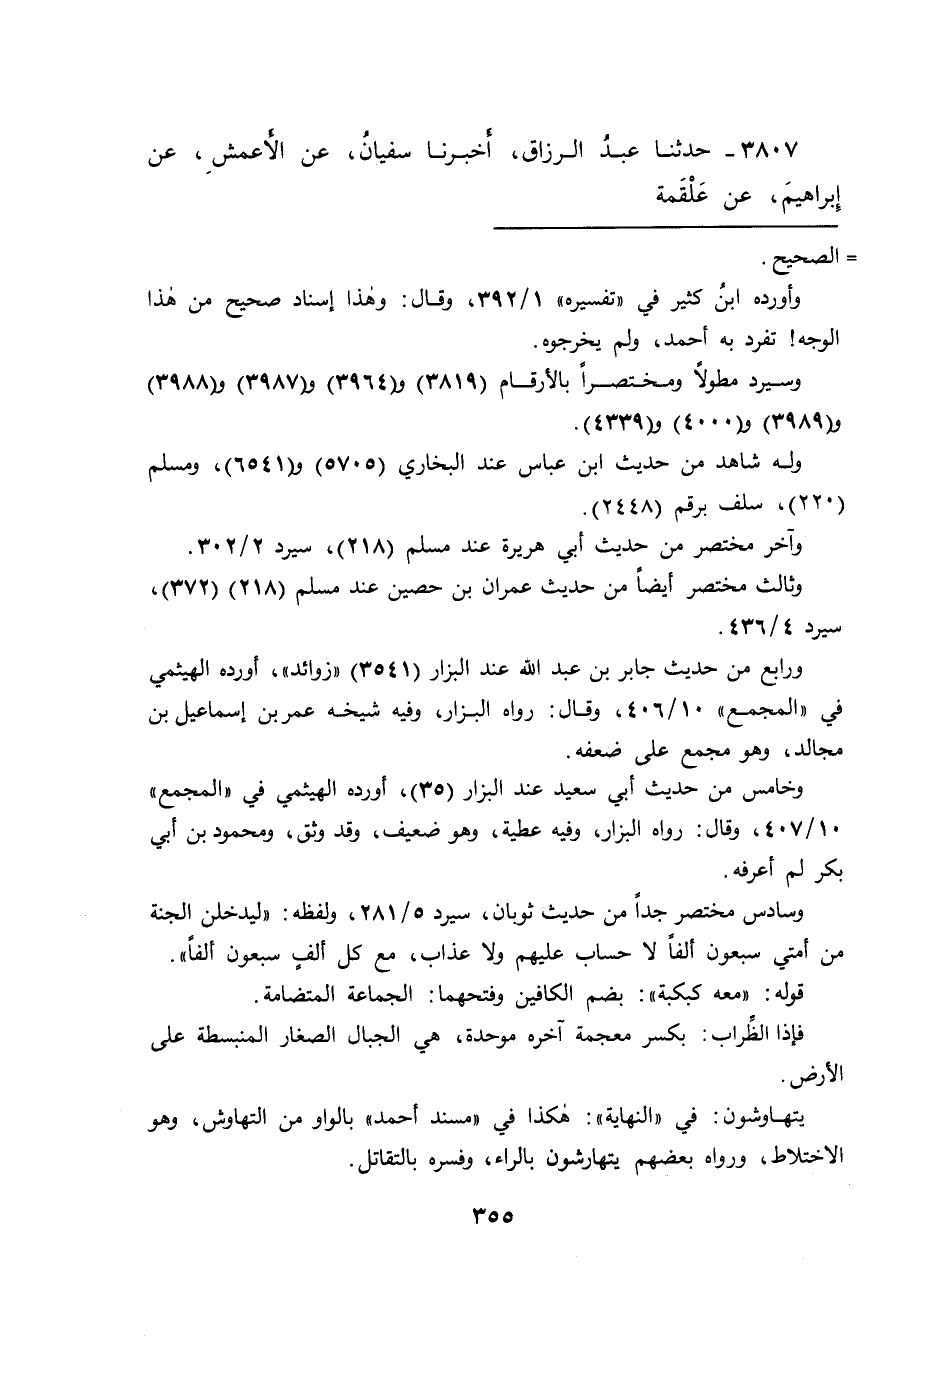 ٣٨٠٧ - حدثنا عبدُ الرزاق، أَخبرنا سفيانُ، عن الأَعمشِ، عن
إِبراهيمَ، عن عَلْقَمة
= الصحيح.
وأورده ابنُ كثير في «تفسيره» ٣٩٢/١، وقال: وهٰذا إسناد صحيح من هٰذا
الوجه! تفرد به أحمد، ولم يخرجوه.
وسيرد مطولاً ومختصراً بالأرقام (٣٨١٩) و(٣٩٦٤) و(٣٩٨٧) و(٣٩٨٨)
و(٣٩٨٩) و(٤٠٠٠) و(٤٣٣٩).
وله شاهد من حديث ابن عباس عند البخاري (٥٧٠٥) و(٦٥٤١)، ومسلم
(٢٢٠)، سلف برقم (٢٤٤٨).
وآخر مختصر من حديث أبي هريرة عند مسلم (٢١٨)، سيرد ٣٠٢/٢.
وثالث مختصر أيضاً من حديث عمران بن حصين عند مسلم (٢١٨) (٣٧٢)،
سيرد ٤٣٦/٤.
ورابع من حديث جابر بن عبد الله عند البزار (٣٥٤١) «زوائد»، أورده الهيثمي
في «المجمع» ٤٠٦/١٠، وقال: رواه البزار، وفيه شيخه عمر بن إسماعيل بن
مجالد، وهو مجمع على ضعفه.
وخامس من حديث أبي سعيد عند البزار (٣٥)، أورده الهيثمي في «المجمع»
٤٠٧/١٠، وقال: رواه البزار، وفيه عطية، وهو ضعيف، وقد وثق، ومحمود بن أبي
بكر لم أعرفه.
وسادس مختصر جداً من حديث ثوبان، سيرد ٢٨١/٥، ولفظه: «ليدخلن الجنة
من أمتي سبعون ألفاً لا حساب عليهم ولا عذاب، مع كل ألفٍ سبعون ألفاً».
قوله: «معه كبكبة»: بضم الكافين وفتحهما: الجماعة المتضامة.
فإذا الظِّراب: بكسر معجمة آخره موحدة، هي الجبال الصغار المنبسطة على
الأرض.
يتهاوشون: في «النهاية»: هٰكذا في «مسند أحمد» بالواو من التهاوش، وهو
الاختلاط، ورواه بعضهم يتهارشون بالراء، وفسره بالتقاتل.
٣٥٥